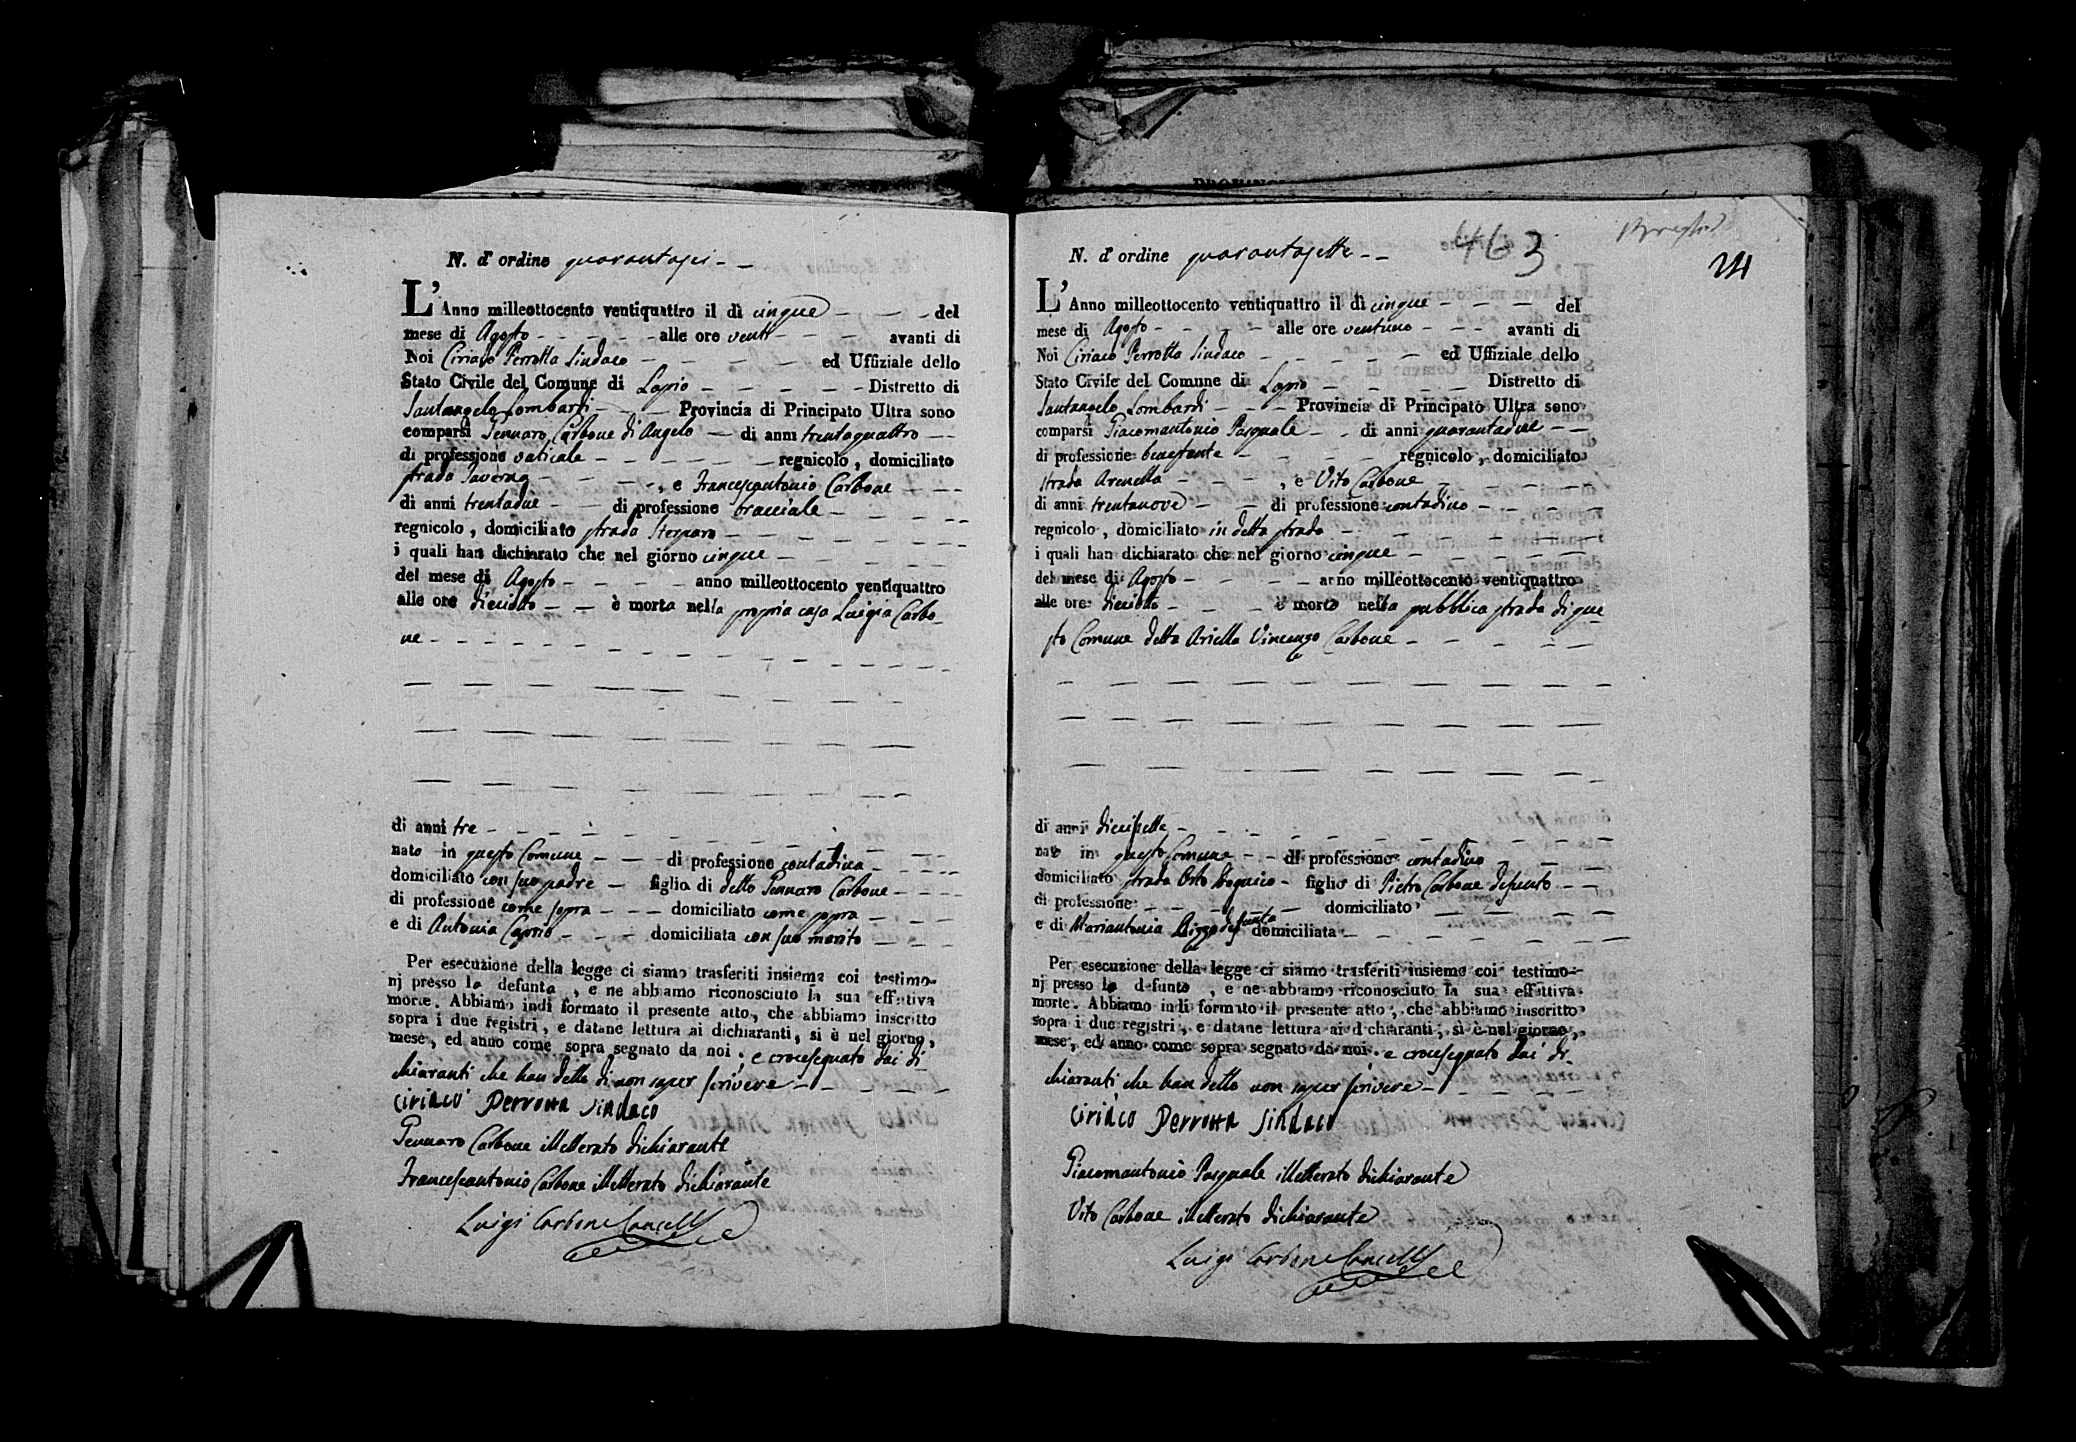 N. d'ordine quarantasei
L'Anno milleottocento ventiquattro il dì cinque del
mese di Agosto alle ore venti avanti di
Noi Ciriaco Perrotta Sindaco ed Uffiziale dello
Stato Civile del Comune di Lapio Distretto di
Santangelo Lombardi Provincia di Principato Ultra sono
comparsi Gennaro Carbone di Angelo di anni trentaquattro
di professione vaticale regnicolo, domiciliato
strada Taverna, e Francescantonio Carbone
di anni trentadue di professione bracciale
regnicolo, domiciliato strada
i quali han dichiarato che nel giorno cinque
del mese di Agosto anno milleottocento ventiquattro
alle ore dieciotto è morta nella propria casa Luigia Carbo-
ne
di anni tre
nato in questo Comune di professione contadina
domiciliato con suo padre figlia di detto Gennaro Carbone
di professione come sopra domiciliato come sopra
e di Antonia Caprio domiciliata con suo marito
Per esecuzione della legge ci siamo trasferiti insieme coi testimo-
nj presso la defunta, e ne abbiamo riconosciuto la sua effettiva
morte. Abbiamo indi formato il presente atto, che abbiamo inscritto
sopra i due registri, e datane lettura ai dichiaranti, si è nel giorno,
mese, ed anno come sopra segnato da noi. e crocesegnato dai di-
chiaranti che han detto di non saper scrivere
Ciriaco Perrotta Sindaco
Gennaro Carbone illetterato dichiarante
Francescantonio Carbone illetterato dichiarante
Luigi Carbone Cancell
463
N. d'ordine quarantasette
L'Anno milleottocento ventiquattro il dì cinque del
mese di Agosto alle ore ventuno avanti di
Noi Ciriaco Perrotta Sindaco ed Uffiziale dello
Stato Civile del Comune di Lapio Distretto di
Santangelo Lombardi Provincia di Principato Ultra sono
comparsi Giacomantonio Pasquale di anni quarantadue
di professione benestante regnicolo, domiciliato
strada Arenella, e Vito Carbone
di anni trentanove di professione contadino
regnicolo, domiciliato in detta strada
i quali han dichiarato che nel giorno cinque
del mese di Agosto anno milleottocento ventiquattro
alle ore dieciotto è morto nella pubblica strada di que-
sto Comune detta Ariella Vincenzo Carbone
di anni diecisette
nato in questo Comune di professione contadino
domiciliato strada Orto figlio di Pietro Carbone defunto
di professione domiciliato
e di Mariantonia Rizzo defunta domiciliata
Per esecuzione della legge ci siamo trasferiti insieme coi testimo-
nj presso lo defunto, e ne abbiamo riconosciuto la sua effettiva
morte. Abbiamo indi formato il presente atto, che abbiamo inscritto
sopra i due registri, e datane lettura ai dichiaranti, si è nel giorno,
mese, ed anno come sopra segnato da noi. e crocesegnato dai di-
chiaranti che han detto non saper scrivere
Ciriaco Perrotta Sindaco
Giacomantonio Pasquale illetterato dichiarante
Vito Carbone illetterato dichiarante
Luigi Carbone Cancell